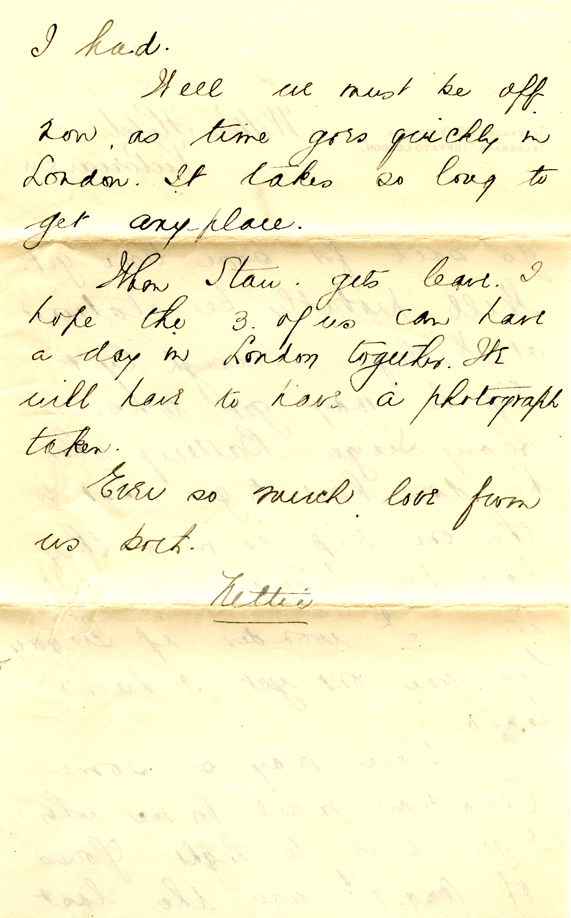 I had.
Well we must be off
now, as time goes quickly in
London. It takes so long to
get any place.
When Stan. gets leave. I
hope the 3. of us can have
a day in London together. We
will have to have a photograph
taken.
Ever so much love from
us both.
Nettie